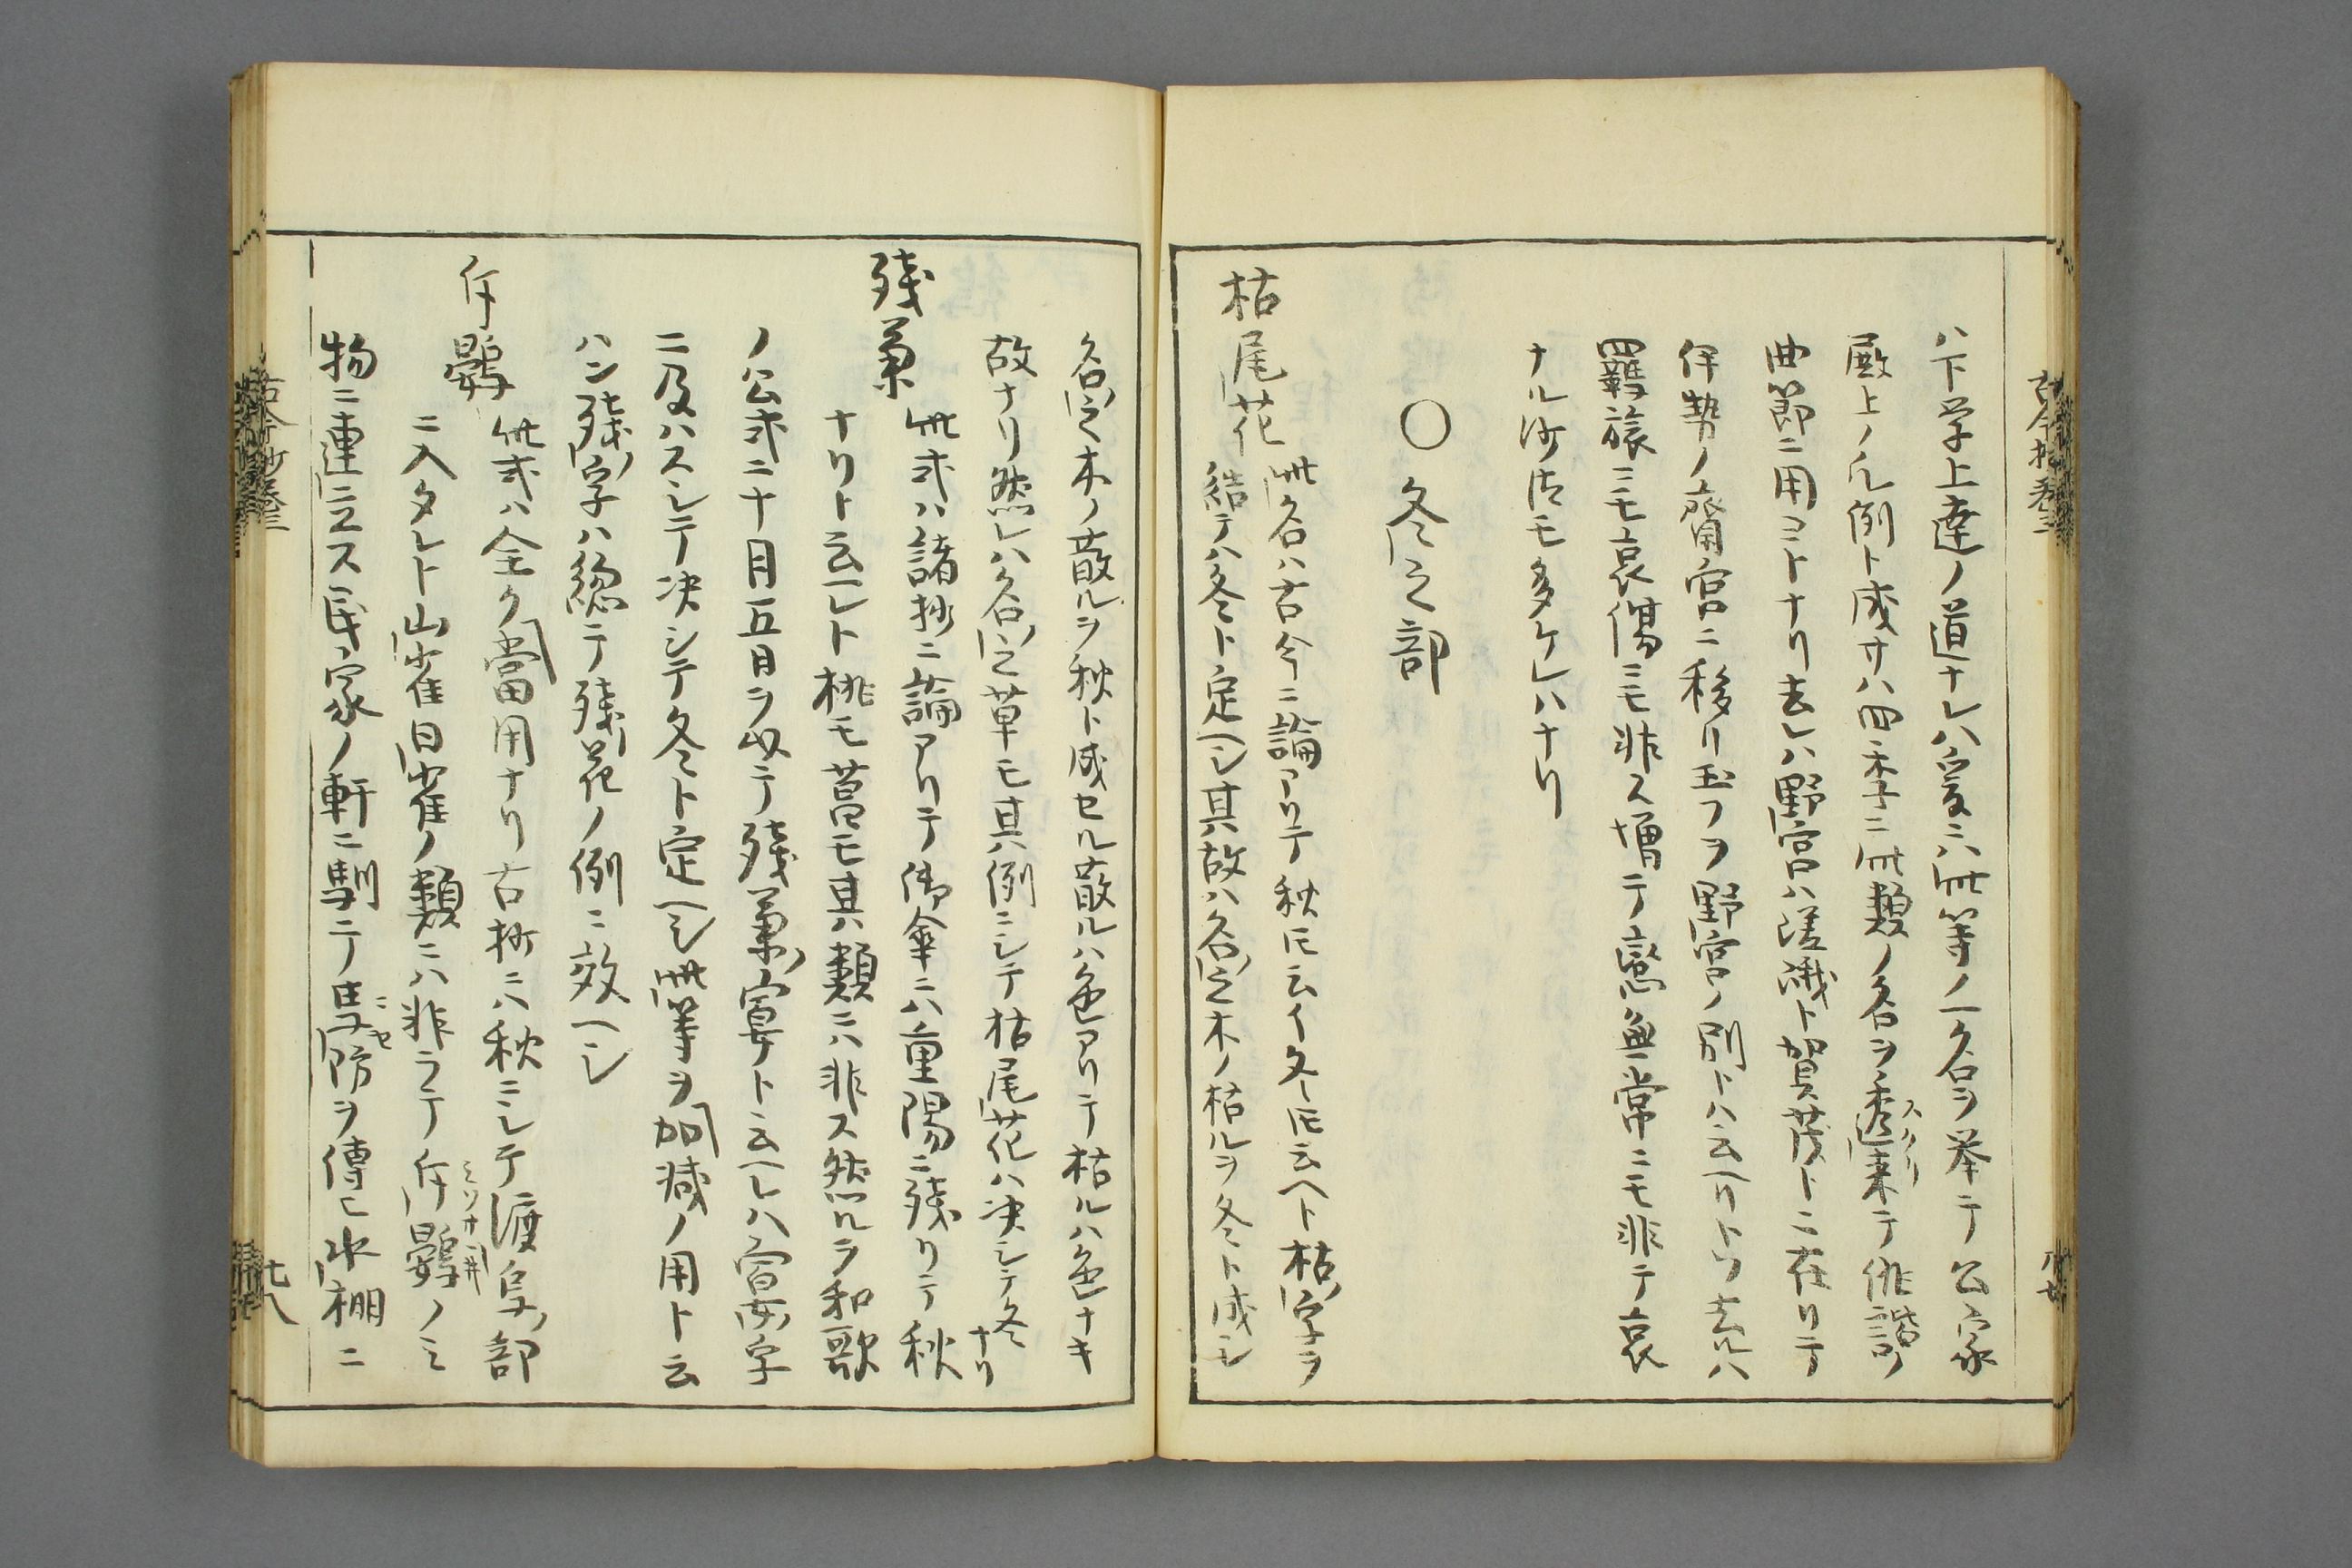 ハ下学上達ノ道ナレハ爰ニハ此等ノ一名ヲ挙テ公家
殿上ノ例ト成サハ四季ニ此類ノ名ヲ透来テ俳諧ノ
スクリ
曲節ニ用コトナリ去レハ野宮ハ嵯峨ト賀茂トニ在リテ
伊勢ノ齋宮ニ移リ玉フヲ野宮ノ別トハ云ヘリトソ去レハ
羇旅ニモ哀傷ニモ非ス増テ戀無常ニモ非テ哀
ナル沙汰モ多ケレハナリ
○冬之部
枯尾花 此名ハ古今ニ論アリテ秋氏云イ冬氏云ヘト枯ノ字ヲ
結テハ冬ト定ヘシ其故ハ名之木ノ枯ルヲ冬ト成シ
名之木ノ散ルヲ秋ト成セル散ルハ色アリテ枯ルハ色ナキ
故ナリ然レハ名之草モ其例ニシテ枯尾花ハ決シテ冬
ナリ
残菊 此式ハ諸抄ニ論アリテ御傘ニハ重陽ニ残リテ秋
ナリト云レト桃モ菖モ其類ニハ非ス然ルヲ和歌
ノ公式ニ十月五日ヲ以テ残菊ノ宴ト云ヘレハ宴ノ字
ニ及ハスシテ決シテ冬ト定ヘシ此等ヲ加減ノ用ト云
ハン残ノ字ハ總テ残花ノ例ニ效ヘシ
斥鷃 此式ハ全ク當用ナリ古抄ニハ秋ニシテ渡鳥ノ部
ニ入タレト山雀日雀ノ類ニハ非ラテ斥鷃ノミ
ミソサヽ井
物ニ連立ス民家ノ軒ニ馴テ防ヲ傳ヒ水棚ニ
古今抄巻三
七八